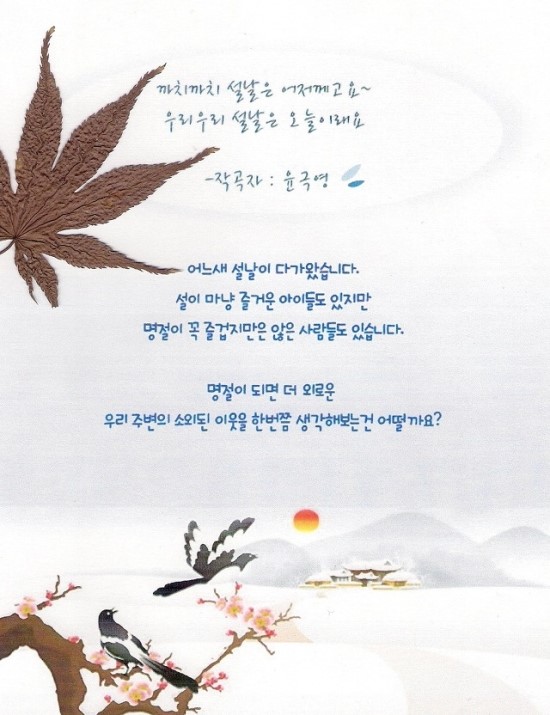 까치까치 설날은 어저께고요~
우리우리 설날은 오늘이래요
-작곡자 : 윤극영
어느새 설날이 다가왔습니다.
설이 마냥 즐거운 아이들도 있지만
명절이 꼭 즐겁지만은 않은 사람들도 있습니다.
명절이 되면 더 외로운
우리 주변의 소외된 이웃을 한번쯤 생각해보는건 어떨까요?